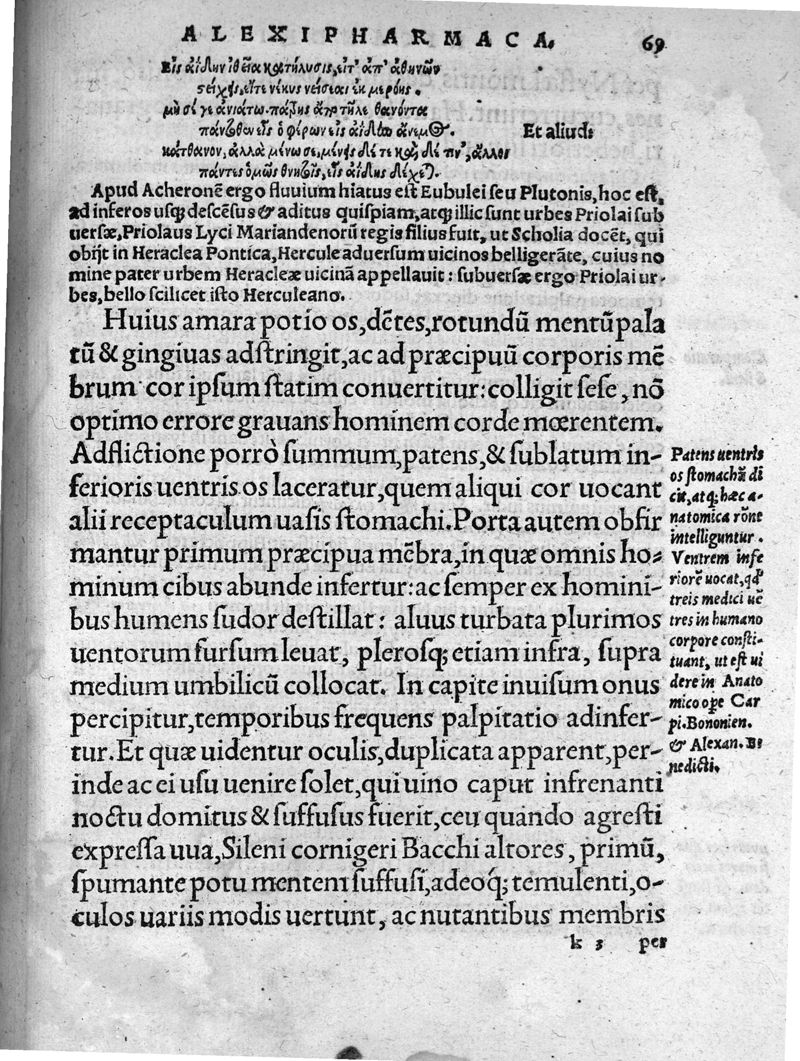 ALEXIPHARMACA. 69
Εἰς ἀΐδην ἰθεῖα κατήλυσις, εἴτ' ἀπ' ἀθηνῶν
στείχῃς, εἴτε νέκυς νείσεαι ἐκ μερόης.
μὴ σέ γε ἀνιάτω πάτρης ἄπο τῆλε θανόντα
πάντοθεν εἷς ὁ φέρων εἰς ἀΐδην ἄνεμος. Et aliud:
κάτθανον, ἀλλὰ μένω σε, μένεις δέ τε καὶ σέ τιν', ἄλλος
πάντες ὁμῶς θνητοὺς εἷς ἀΐδης δέχεται.
Apud Acheronē ergo fluuium hiatus est Eubulei seu Plutonis, hoc est,
ad inferos usq; descēsus & aditus quispiam, atq; illic sunt urbes Priolai sub
uersæ, Priolaus Lyci Mariandenorū regis filius fuit, ut Scholia docēt, qui
obijt in Heraclea Pontica, Hercule aduersum uicinos belligerāte, cuius no
mine pater urbem Heracleæ uicinā appellauit: subuersæ ergo Priolai ur-
bes, bello scilicet isto Herculeano.
Huius amara potio os, dētes, rotundū mentū pala
tū & gingiuas adstringit, ac ad præcipuū corporis mē
brum cor ipsum statim conuertitur: colligit sese, nō
optimo errore grauans hominem corde mœrentem.
Adflictione porrò summum, patens, & sublatum in-
ferioris uentris os laceratur, quem aliqui cor uocant
alii receptaculum uasis stomachi. Porta autem obfir
mantur primum præcipua mēbra, in quæ omnis ho-
minum cibus abunde infertur: ac semper ex homini-
bus humens sudor destillat: aluus turbata plurimos
uentorum sursum leuat, plerosq; etiam infra, supra
medium umbilicū collocat. In capite inuisum onus
percipitur, temporibus frequens palpitatio adinfer-
tur. Et quæ uidentur oculis, duplicata apparent, per-
inde ac ei usu uenire solet, qui uino caput infrenanti
noctu domitus & suffusus fuerit, ceu quando agresti
expressa uua, Sileni cornigeri Bacchi altores, primū,
spumante potu mentem suffusi, adeoq; temulenti, o-
culos uariis modis uertunt, ac nutantibus membris
k 3 per
Patens uentris
os stomachū di
cit, atq; hæc a-
natomica rōne
intelliguntur.
Ventrem infe
riorē uocat, qđ
treis medici uē
tres in humano
corpore consti-
tuant, ut est ui
dere in Anato
mico ope Car
pi. Bononien.
& Alexan. Be
nedicti.